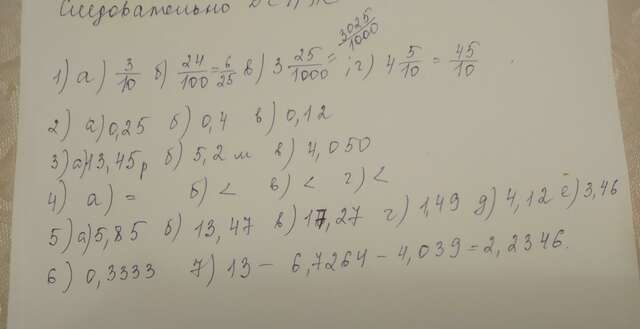 Следовательно
1) а) 3/10 б) 24/100 = 6/25 в) 3 25/1000 = 3025/1000; г) 4 5/10 = 45/10.
2) а) 0,25 б) 0,4 в) 0,12
3) а) 13,45р б) 5,2 м в) 4,050
4) а) = б) < в) < г) <
5) а) 5,85 б) 13,47 в) 17,27 г) 1,49 д) 4,12 ё) 3,46
6) 0,3333 7) 13 - 6,7264 - 4,039 = 2,2346.